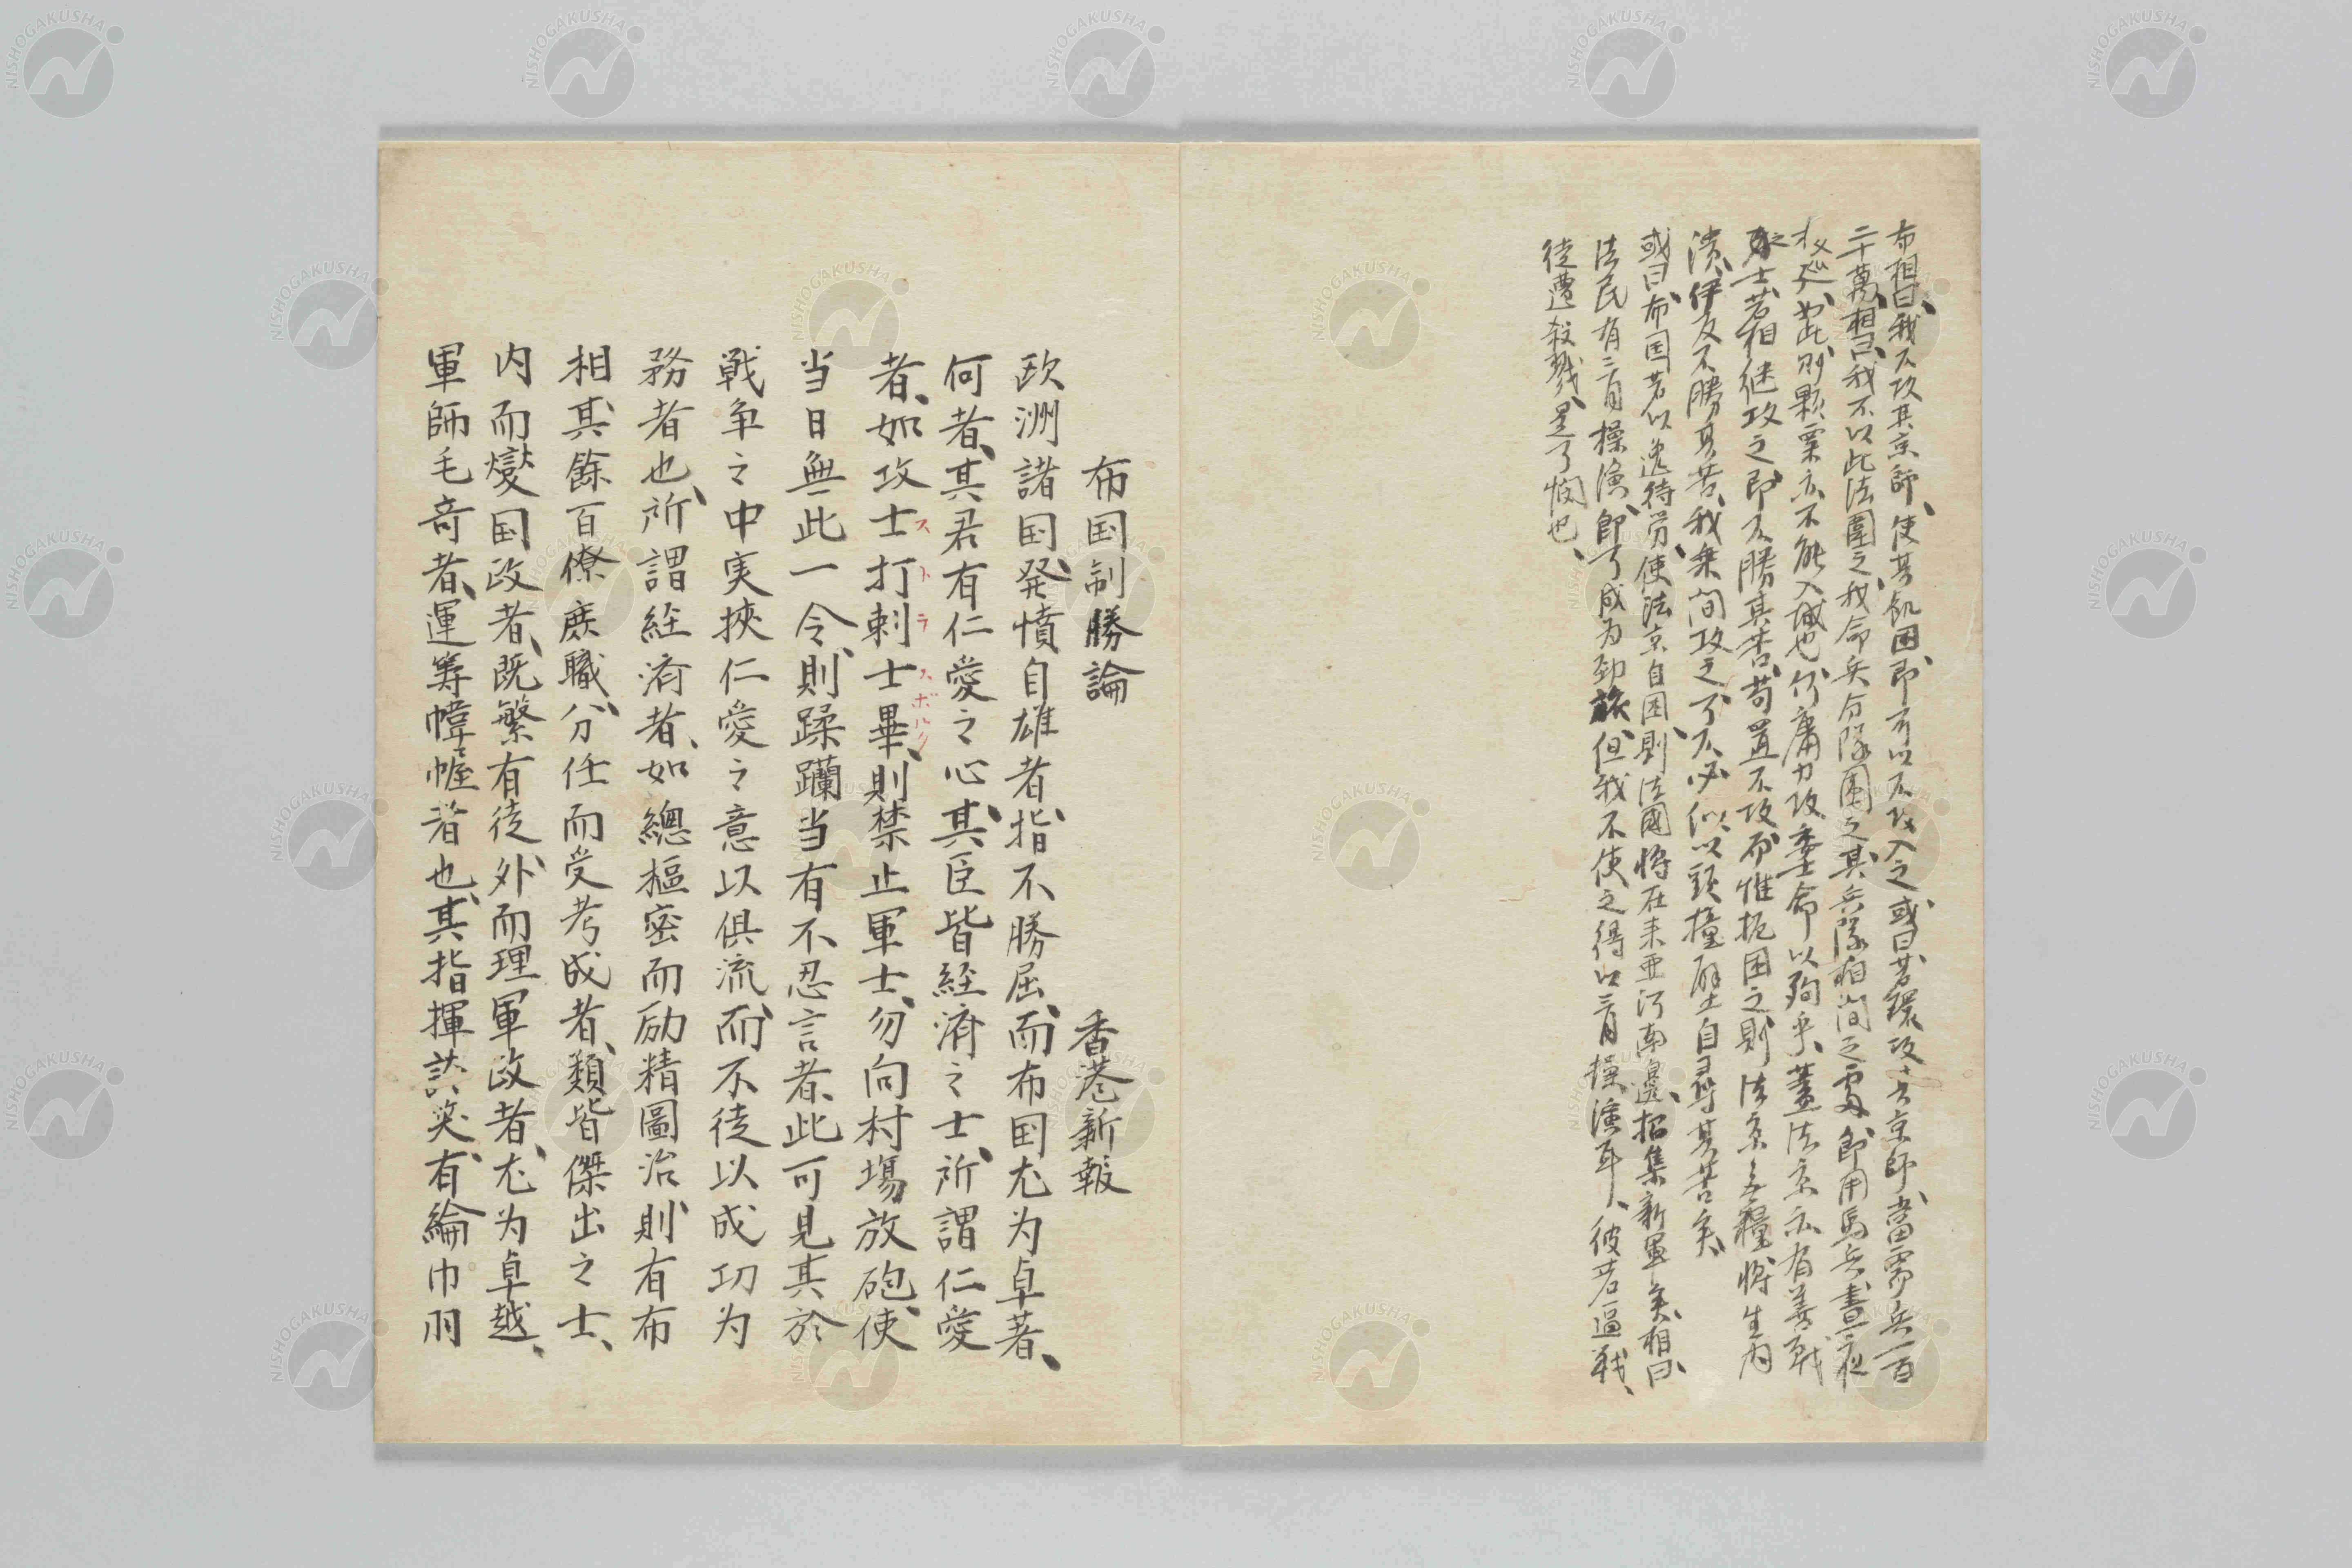 布相曰、我不攻其京師、使其飢困、即可以不攻入之、或曰、若環攻其京師、當需兵一百
二十萬、相曰、我不以此法圍之、我命兵分隊圍之、其兵隊相間之處、即用馬兵晝夜
巡、如此、則顆粟亦不能入城也、何庸力攻委士命以殉乎、蓋法京亦有善戰
之士、若相继攻之、即不勝其苦、苟置不攻、而惟扼困之、則法京無糧將生内
潰、伊反不勝其苦、我乗間攻之可、不必似以頭撞壁土自尋其苦矣、
或曰、布国若以逸待労、使法京自困、則法國將在来亜河南邊、招集新軍矣、相曰、
法民有三月操演、即可成为劲旅、但我不使之得以三月操演耳、彼若逼戦、
徒遭殺戮、是可憫也、
布国制勝論 香港新報
欧洲諸国、発憤自雄者、指不勝屈、而布国尤为卓著、
何者、其君有仁愛之心、其臣皆経済之士、所謂仁愛
者、如攻士打剌士畢、則禁止軍士、勿向村場放砲、使
ストラスボルク
当日無此一令、則蹂躪当有不忍言者、此可見其於
戦争之中実挾仁愛之意以俱流、而不徒以成功为
務者也、所謂経済者、如總樞密而励精圖治、則有布
相、其餘百僚庶職、分任而受考成者、類皆傑出之士、
内而變国政者、既繁有徒、外而理軍政者、尤为卓越、
軍師毛奇者、運籌幃幄者也、其指揮談笑、有綸巾羽
NISHOGAKUSHA